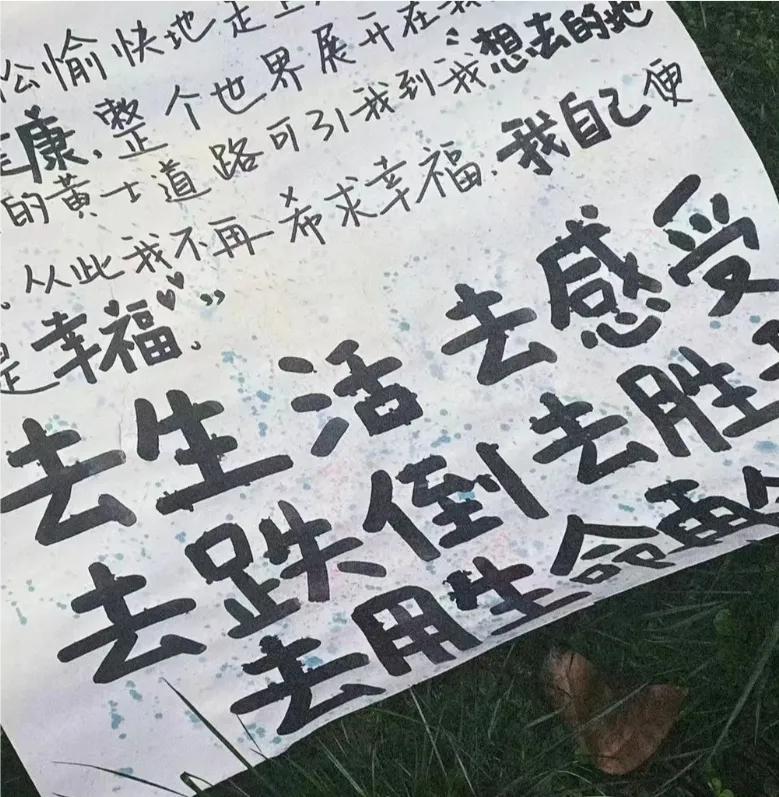 松愉快地走上
康，整个世界展开在我
的黄土道路可引我到我想去的地
从此我不再希求幸福，我自己便
是幸福。”
去生活 去感受
去跌倒 去胜
去用生命再